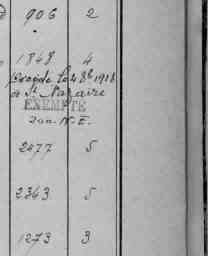 906 2
1848 4
Décédé le 4 8bre 1918
à St Nazaire
EXEMPTE
2477 5
2343 5
1273 3